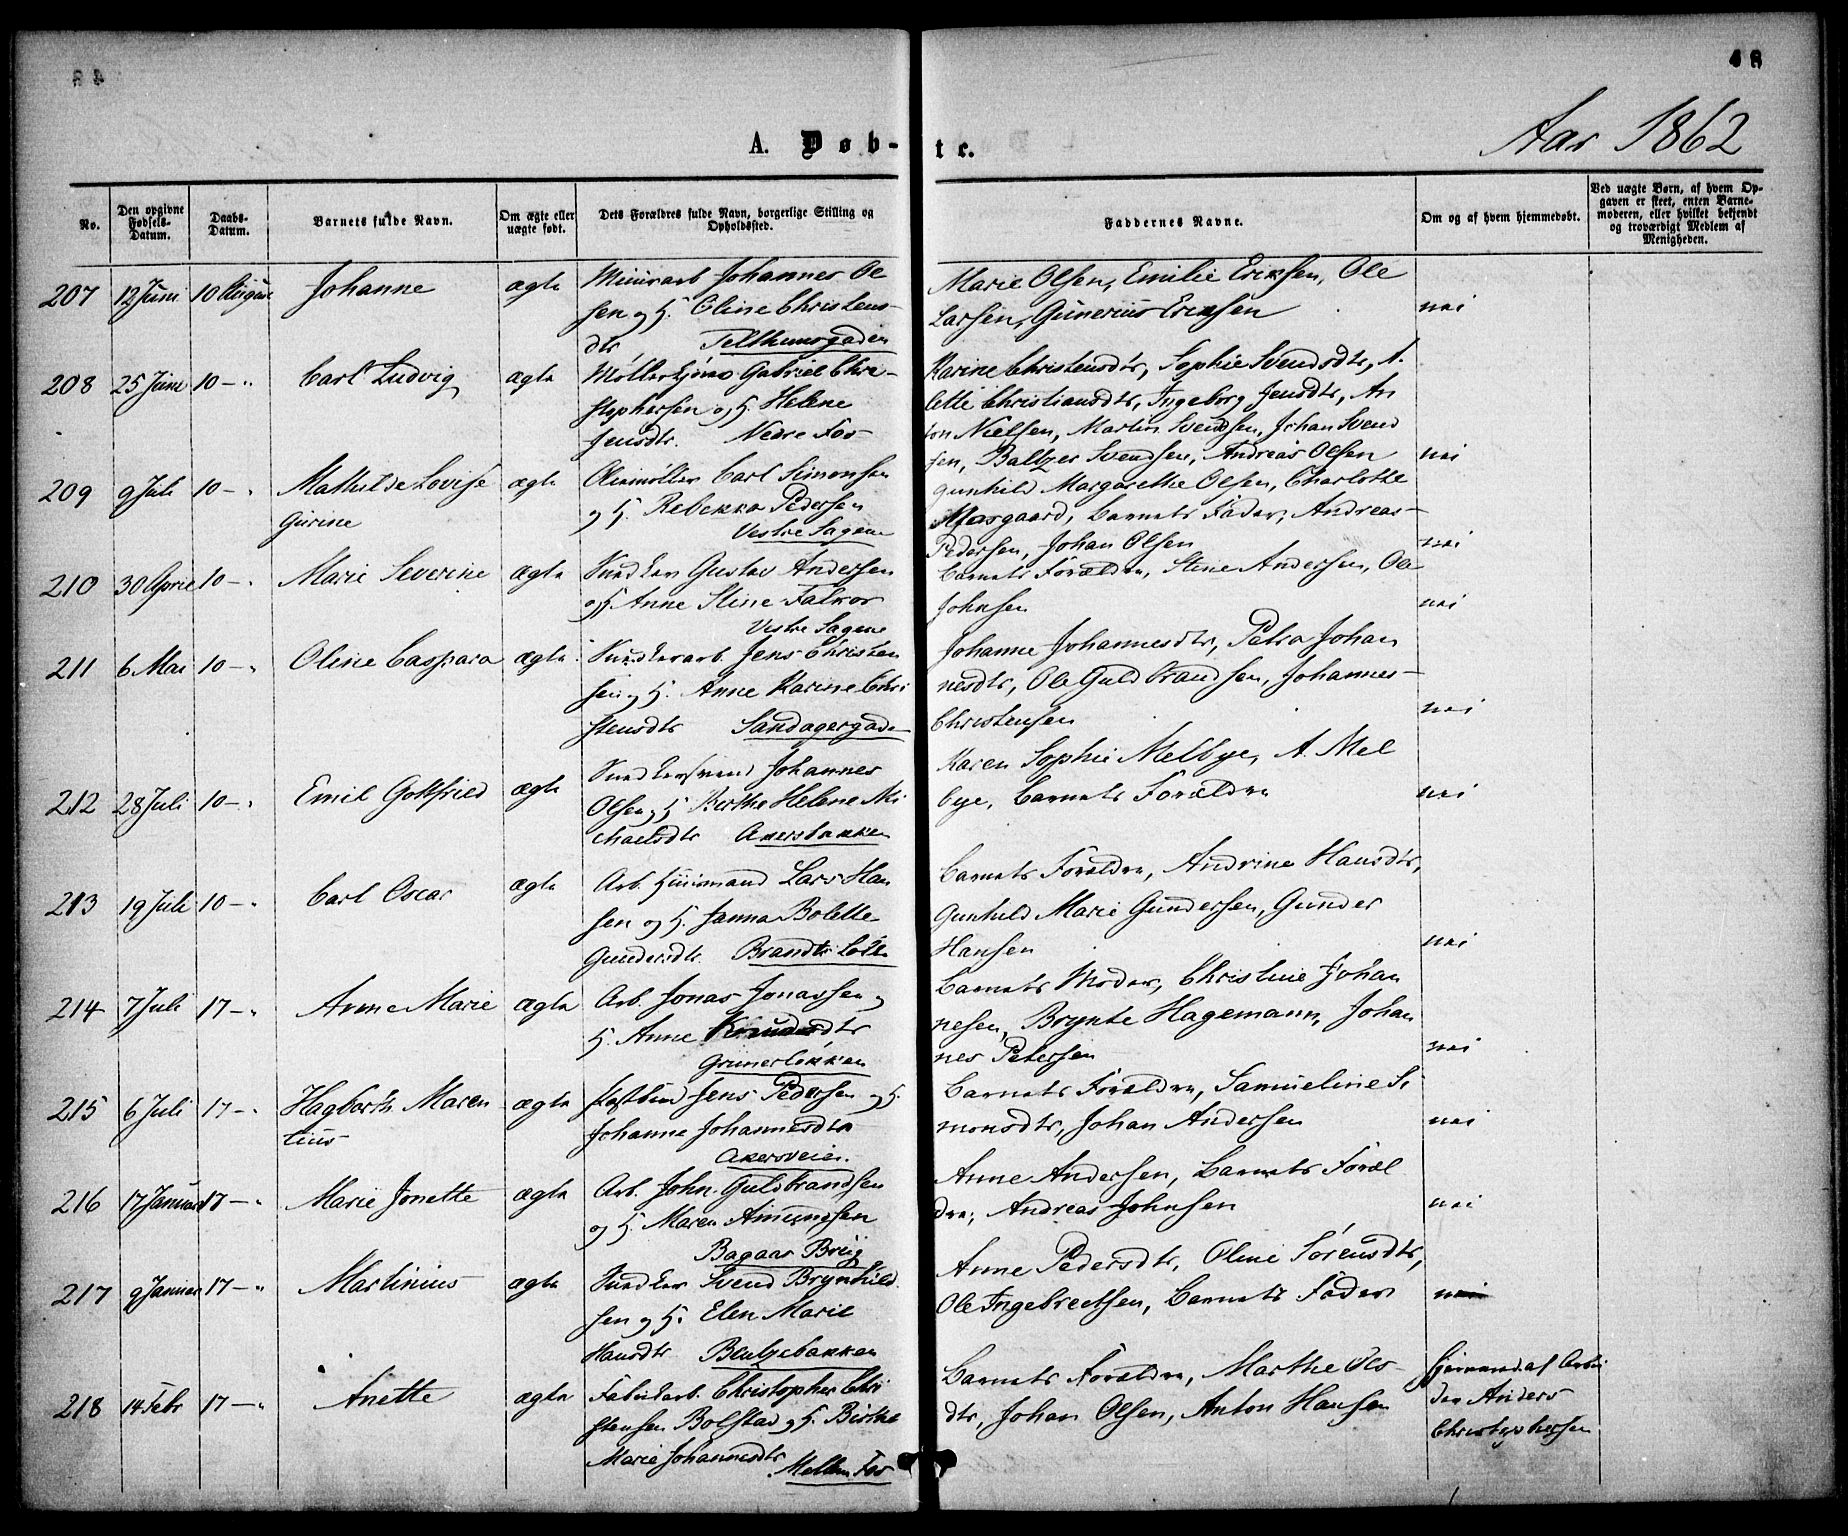 48
A. Døb-te.
Aar 1862
No.
Den opgivne Fødsels-Datum.
Daabs-Datum.
Barnets fulde Navn.
Om ægte eller uægte født.
Dets Forældres fulde Navn, borgerlige Stilling og Opholdssted.
Faddernes Navne.
Om og af hvem hjemmedøbt.
Ved uægte Børn, af hvem Opgaven er skeet, enten Barnemoderen, eller hvilket bekjendt og troværdigt Medlem af Menigheden.
207 12 Juni 10 August Johanne ægte
Muurarb Johannes Ol
sen og H. Oline Christens-
dtr Telthusgaden
Marie Olsen, Emilie Eriksen, Ole
Larsen, Gunerius Eriksen nei
208 25 Juni 10 – " Carl Ludvig ægte
Møller Gabriel Chri-
stophersen og H. Helene
Jensdtr. Nedre Fos
Karine Christensdtr, Sophie Svendsdtr, A.
lette Christiansdtr, Ingeborg Jensdtr, An
ton Nielsen, Martin Svendsen, Johan Svend
sen, Baltzer Svendsen, Andreas Olsen nei
209 9 Juli 10 – " Mathilde Lovise
Gurine ægte
Oliemøller Carl Simonsen
og H. Rebekka Pedersen
Vestre Sagene
Gunhild Margarethe Olsen, Charlotte
Moesgaard, Barnets Fader, Andreas
Pedersen, Johan Olsen nei
210 30 April 10 – " Marie Severine ægte
Snedker Gustav Andersen
og H. Anne Stine Falkor
Vestre Sagene
Barnets Forældre, Stine Andersen, Ole
Johnsen nei
211 6 Mai 10 – " Oline Caspara ægte
Snedkerarb. Jens Christen
sen og H. Anne Karine Chri
stensdtr Sandagergaden
Johanne Johannesdtr, Petra Johan
nesdtr, Ole Guldbrandsen, Johannes
Christensen nei
212 28 Juli 10 – " Emil Gottfried ægte
Snedkersvend Johannes
Olsen og H Berthe Helene Mi
chaelsdtr Akersbakken
Karen Sophie Melbye, A. Mel
bye, Barnets Forældre nei
213 19 Juli 10 – " Carl Oscar ægte
Arb. Huusmand Lars Han
sen og H. Janna Bolette
Gundersdtr. Brandts Løkke
Barnets Forældre, Andrine Hansdtr,
Gunhild Marie Gundersen, Gunder
Hansen nei
214 7 Juli 17 – " Anne Marie ægte
Arb. Jonas Jonassen og
H. Anne Knudsdtr
Grunerløkken
Barnets Moder, Christine Johan
nesen, Brynte Hagemann, Johan
nes Petersen nei
215 6 Juli 17 – " Hagbarth Maren
tius ægte
Postbud Jens Pedersen og H.
Johanne Johannesdtr
Akersveien.
Barnets Forældre, Samueline Si
monsdtr, Johan Andersen nei
216 17 Januar 17 – " Marie Jonette ægte
Arb. John Guldbrandsen
og H. Maren Amundsen
Bagaas Brug
Anne Andersen, Barnets Foræl
dre, Andreas Johnsen nei
217 9 Januar 17 – " Martinius ægte
Snedker Svend Brynhild
sen og H. Elen Marie
Hansdtr Bentzebakken
Anne Pedersdtr, Oline Sørensdtr,
Ole Ingebretsen, Barnets Fader nei
218 14 Febr 17 – " Anette ægte
Fabrikarb. Christopher Chri
stensen Bolstad og H. Birthe
Marie Johannesdtr
Mellem Fos
Barnets Forældre, Marthe Ols
dtr, Johan Olsen, Anton Hansen
af Arbei
der Anders
Christophersen